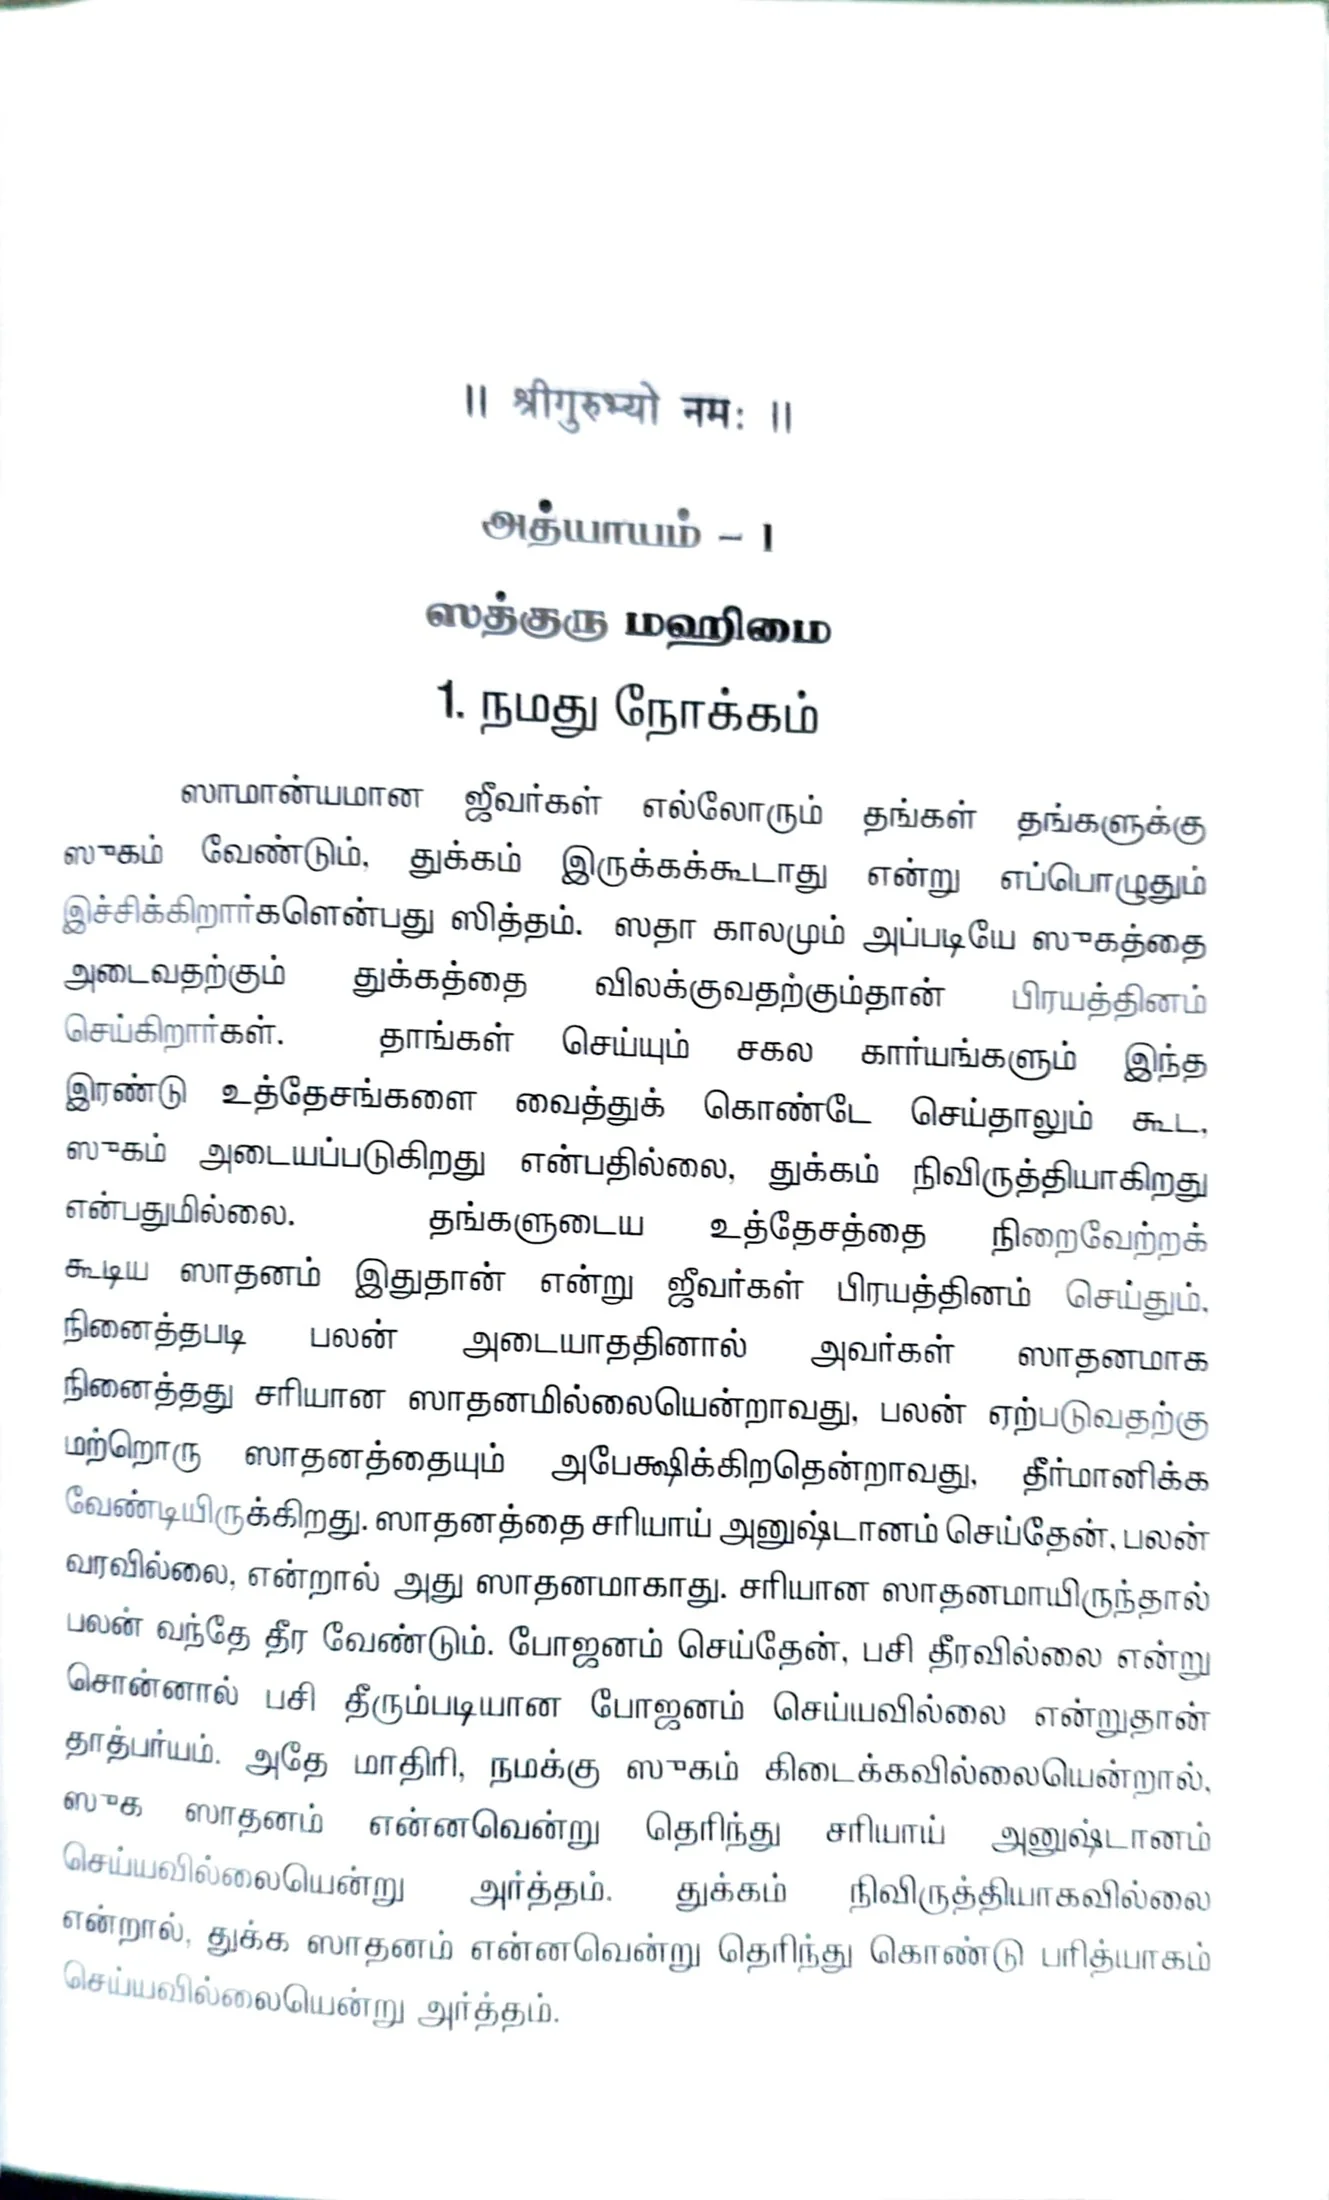 ॥ श्रीगुरुभ्यो नमः ॥
அத்யாயம் – I
ஸத்குரு மஹிமை
1. நமது நோக்கம்
ஸாமான்யமான ஜீவர்கள் எல்லோரும் தங்கள் தங்களுக்கு
ஸுகம் வேண்டும், துக்கம் இருக்கக்கூடாது என்று எப்பொழுதும்
இச்சிக்கிறார்களென்பது ஸித்தம். ஸதா காலமும் அப்படியே ஸுகத்தை
அடைவதற்கும் துக்கத்தை விலக்குவதற்கும்தான் பிரயத்தினம்
செய்கிறார்கள். தாங்கள் செய்யும் சகல கார்யங்களும் இந்த
இரண்டு உத்தேசங்களை வைத்துக் கொண்டே செய்தாலும் கூட,
ஸுகம் அடையப்படுகிறது என்பதில்லை, துக்கம் நிவிருத்தியாகிறது
என்பதுமில்லை. தங்களுடைய உத்தேசத்தை நிறைவேற்றக்
கூடிய ஸாதனம் இதுதான் என்று ஜீவர்கள் பிரயத்தினம் செய்தும்,
நினைத்தபடி பலன் அடையாததினால் அவர்கள் ஸாதனமாக
நினைத்தது சரியான ஸாதனமில்லையென்றாவது, பலன் ஏற்படுவதற்கு
மற்றொரு ஸாதனத்தையும் அபேக்ஷிக்கிறதென்றாவது, தீர்மானிக்க
வேண்டியிருக்கிறது. ஸாதனத்தை சரியாய் அனுஷ்டானம் செய்தேன், பலன்
வரவில்லை, என்றால் அது ஸாதனமாகாது. சரியான ஸாதனமாயிருந்தால்
பலன் வந்தே தீர வேண்டும். போஜனம் செய்தேன், பசி தீரவில்லை என்று
சொன்னால் பசி தீரும்படியான போஜனம் செய்யவில்லை என்றுதான்
தாத்பர்யம். அதே மாதிரி, நமக்கு ஸுகம் கிடைக்கவில்லையென்றால்,
ஸுக ஸாதனம் என்னவென்று தெரிந்து சரியாய் அனுஷ்டானம்
செய்யவில்லையென்று அர்த்தம். துக்கம் நிவிருத்தியாகவில்லை
என்றால், துக்க ஸாதனம் என்னவென்று தெரிந்து கொண்டு பரித்யாகம்
செய்யவில்லையென்று அர்த்தம்.